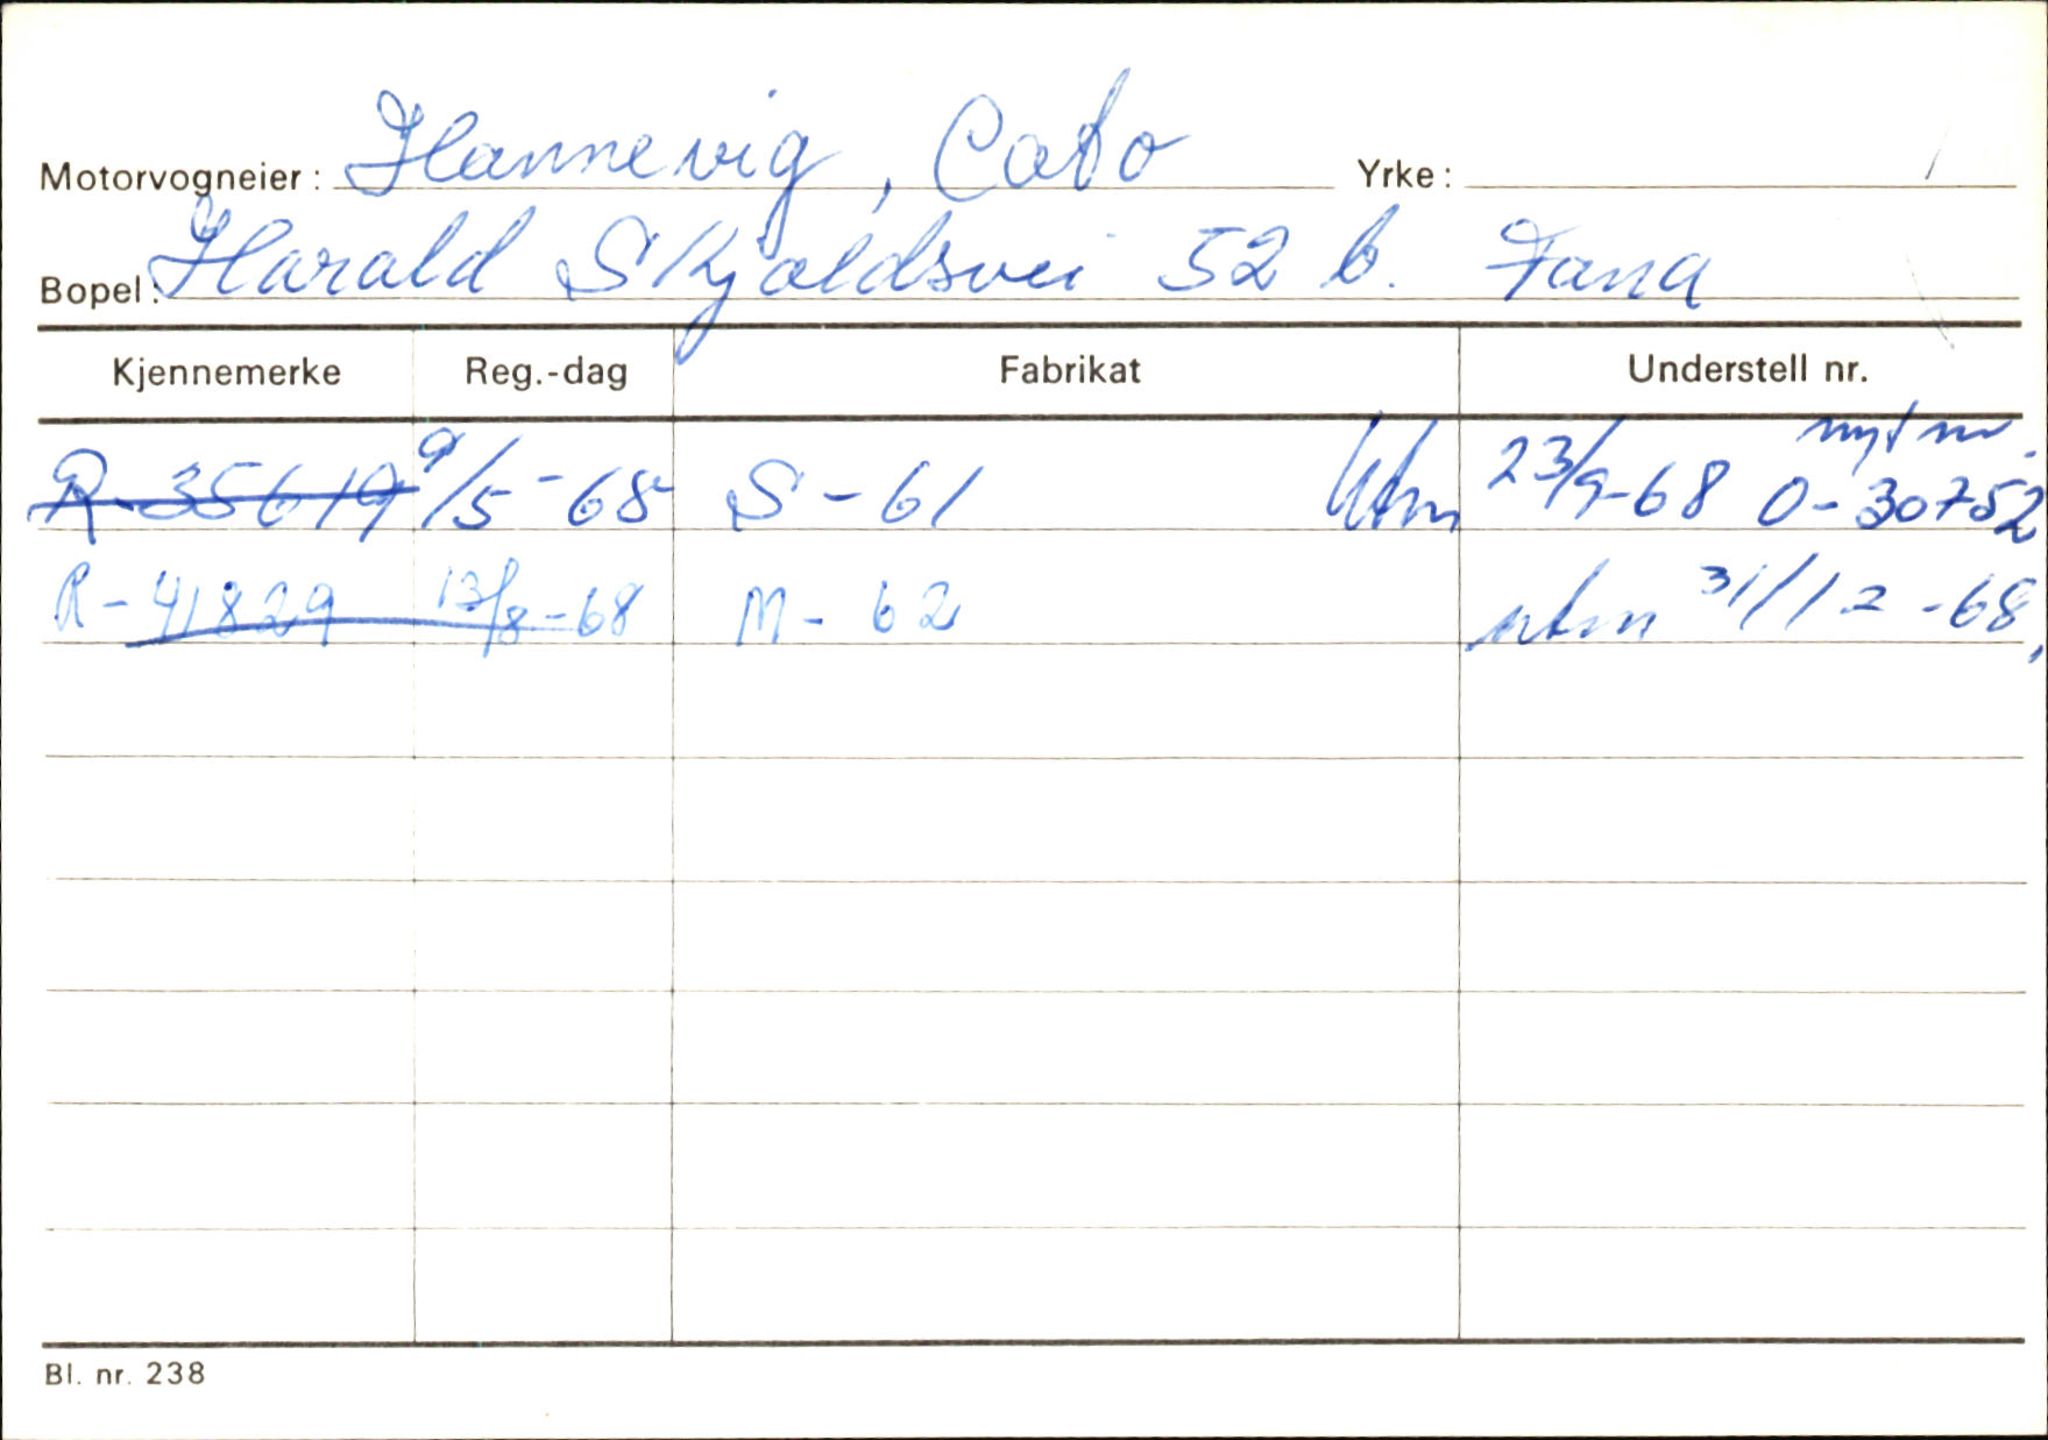 Motorvogneier: Hannevig, Cato Yrke:
Bopel: Harald Skjoldsvei 52 b. Fana
Kjennemerke Reg.-dag Fabrikat Understell nr.
nyt nr.
R-35619 9/5-68 S-61 Utm 23/9-68 O-30752
R-41829 13/8-68 M-62 utm 31/12-68,
Bl. nr. 238